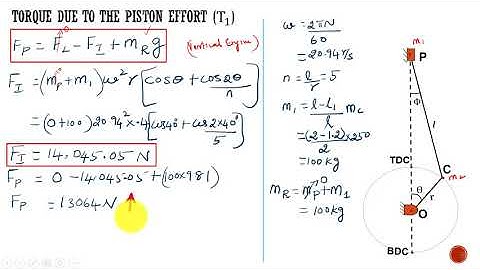 TORQUE DUE TO THE PISTON EFFORT (T₁)
F_P = F_L - F_I + m_R g
(Vertical Engine)
F_I = (m_P + m₁) ω² r [cosθ + cos2θ/n]
= (0+100) 20.94² × .4 [cos40° + cos2×40°/5]
F_I = 14,045.05 N
F_P = 0 - 14045.05 + (100×9.81)
F_P = 13064 N ↑
ω = 2πN/60
= 20.94 r/s
n = l/r = 5
m₁ = l - l₁/l m_c
= (2-1.2)×250/2
= 100 kg
m_R = m_P + m₁
= 100 kg
m₁
P
Φ
l
TDC
C
m₂
θ
r
O
BDC